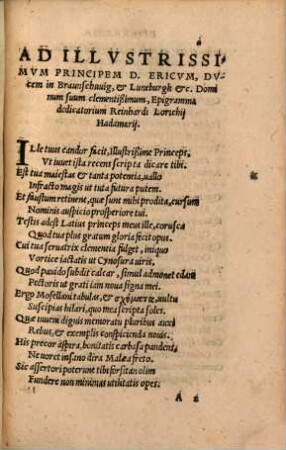 AD ILLVSTRISSI
MVM PRINCIPEM D. ERICVM, DV
cem in Braunschuuig, & Luneburgh &c. Domi
num suum clementißimum, Epigramma
dedicatorium Reinhardi Lorichij
Hadamarij.
ILle tuus candor facit, Illustrißime Princeps,
Vt iuuet ista recens scripta dicare tibi.
Est tua maiestas & tanta potentia, uallo
Infracto magis ut tuta futura putem.
Et faustum retinent, quæ sunt mihi prodita, cursum
Nominis auspicio prosperiore tui.
Testis adest Latius princeps meus ille, corusca
Quod tua plus gratum gloria fecit opus.
Cui tua seruatrix clementia fulget, iniquo
Vortice iactatis ut Cynosura uiris.
Quod pauido subdit calcar, simul admonet edam
Pectoris ut grati iam noua signa mei.
Ergo Mosellani tabulas, & σχήματα, uultu
Suscipias hilari, quo mea scripta soles.
Quæ iuuenū dignis memoratu pluribus auxi
Rebus, & exemplis conspicienda nouis.
His precor aspira, bonitatis carbasa pandens,
Ne uoret insano dira Malæa freto.
Sic assertori poterunt tibi forsitan olim
Fundere non minimas utilitatis opes.
A 2